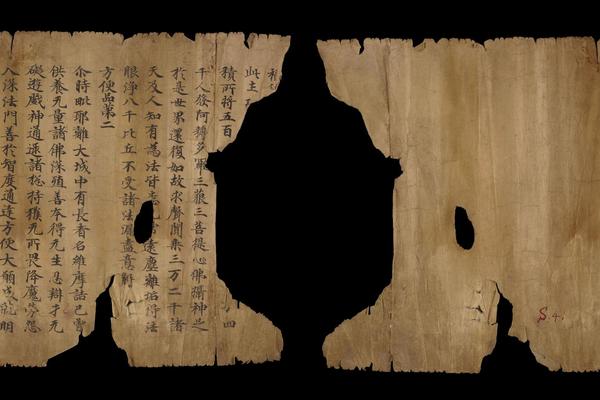 積
此土
積所將五百 四
千人發阿耨多羅三藐三菩提心佛攝神足
於是世界還復如故求聲聞乘三万二千諸
天及人知有為法皆悉无常遠塵離垢得法
眼淨八千比丘不受諸法漏盡意解
方便品第二
尒時毗耶離大城中有長者名維摩詰已曾
供養无量諸佛深殖善本得无生忍辯才无
礙遊戲神通逮諸捴持獲无所畏降魔勞怨
入深法門善於智度通達方便大願成就明
S.4.